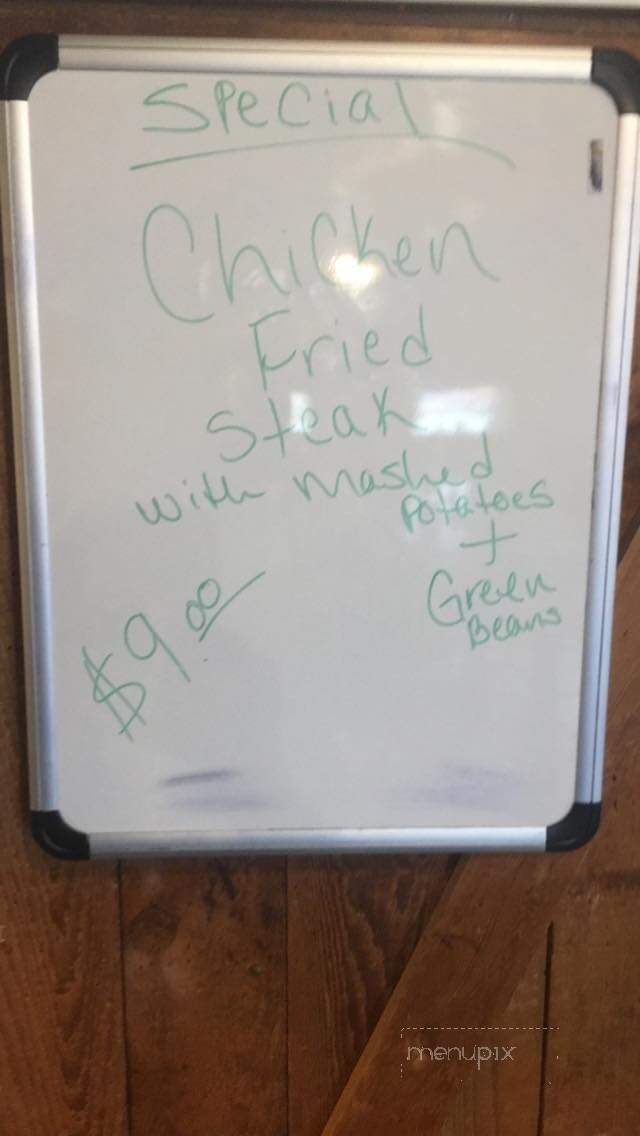 Special
Chicken
Fried
Steak
with mashed
Potatoes
+
Green
Beans
$9.00
menupix